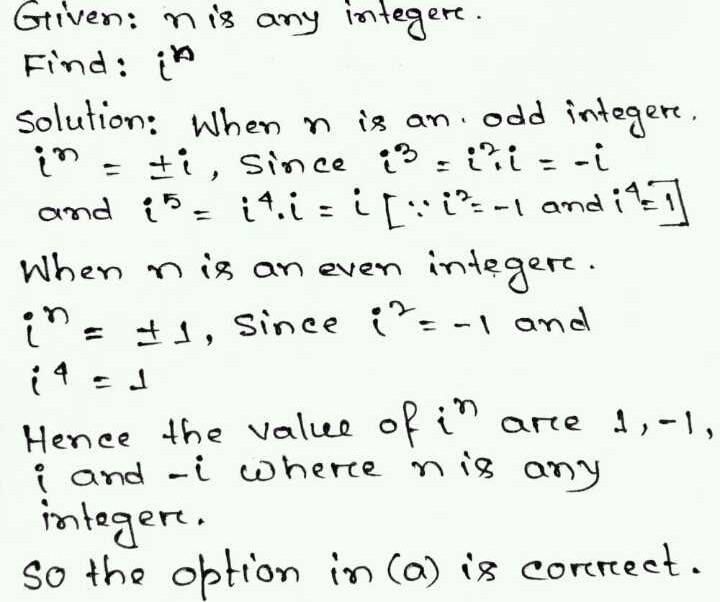 Given: n is any integer.
Find: iⁿ
Solution: When n is an odd integer.
iⁿ = ±i, Since i³ = i².i = -i
and i⁵ = i⁴.i = i [∵ i² = -1 and i⁴ = 1]
When n is an even integer.
iⁿ = ±1, Since i² = -1 and
i⁴ = 1
Hence the value of iⁿ are 1, -1,
i and -i where n is any
integer.
So the option in (a) is correct.